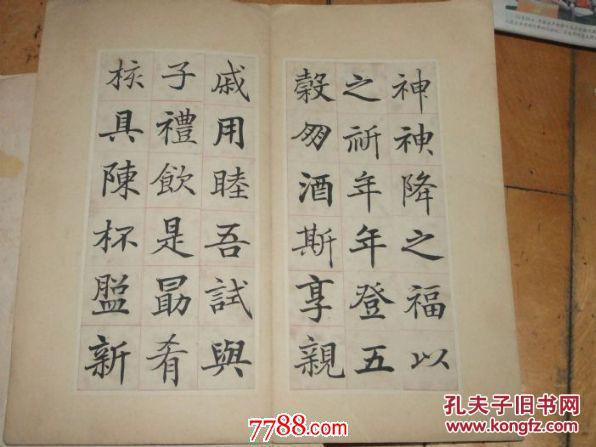 神神降之福以
之祈年年登五
穀酒斯享親
戚用睦吾試與
子禮飲是勗肴
核具陳杯新
7788.com
孔夫子旧书网
www.kongfz.com